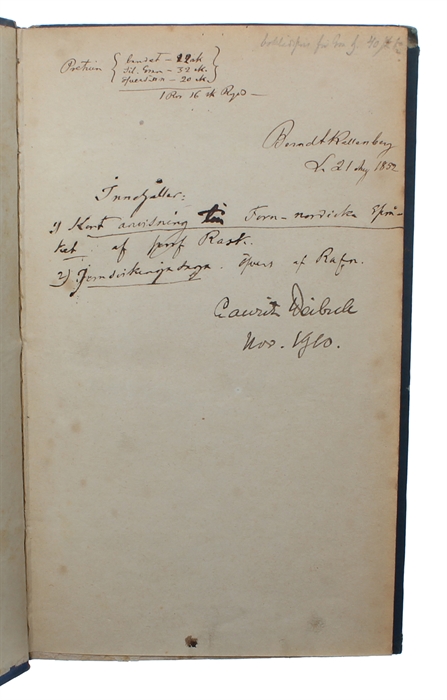 Pretium { bandet – 22 sk
til. Exen – 32 sk.
öfversän – 20 sk. }
1 Rdr 16 sk Rgds –
Berndt Kellenberg
L. 21 Aug 1852
Innehåller:
1) Kort anvisning till Forn-nordiska Språ-
ket. af prof Rask.
2) Jomsvikinga saga. Öfvers af Rafn.
Lauritz Weibull
Nov. 1910.